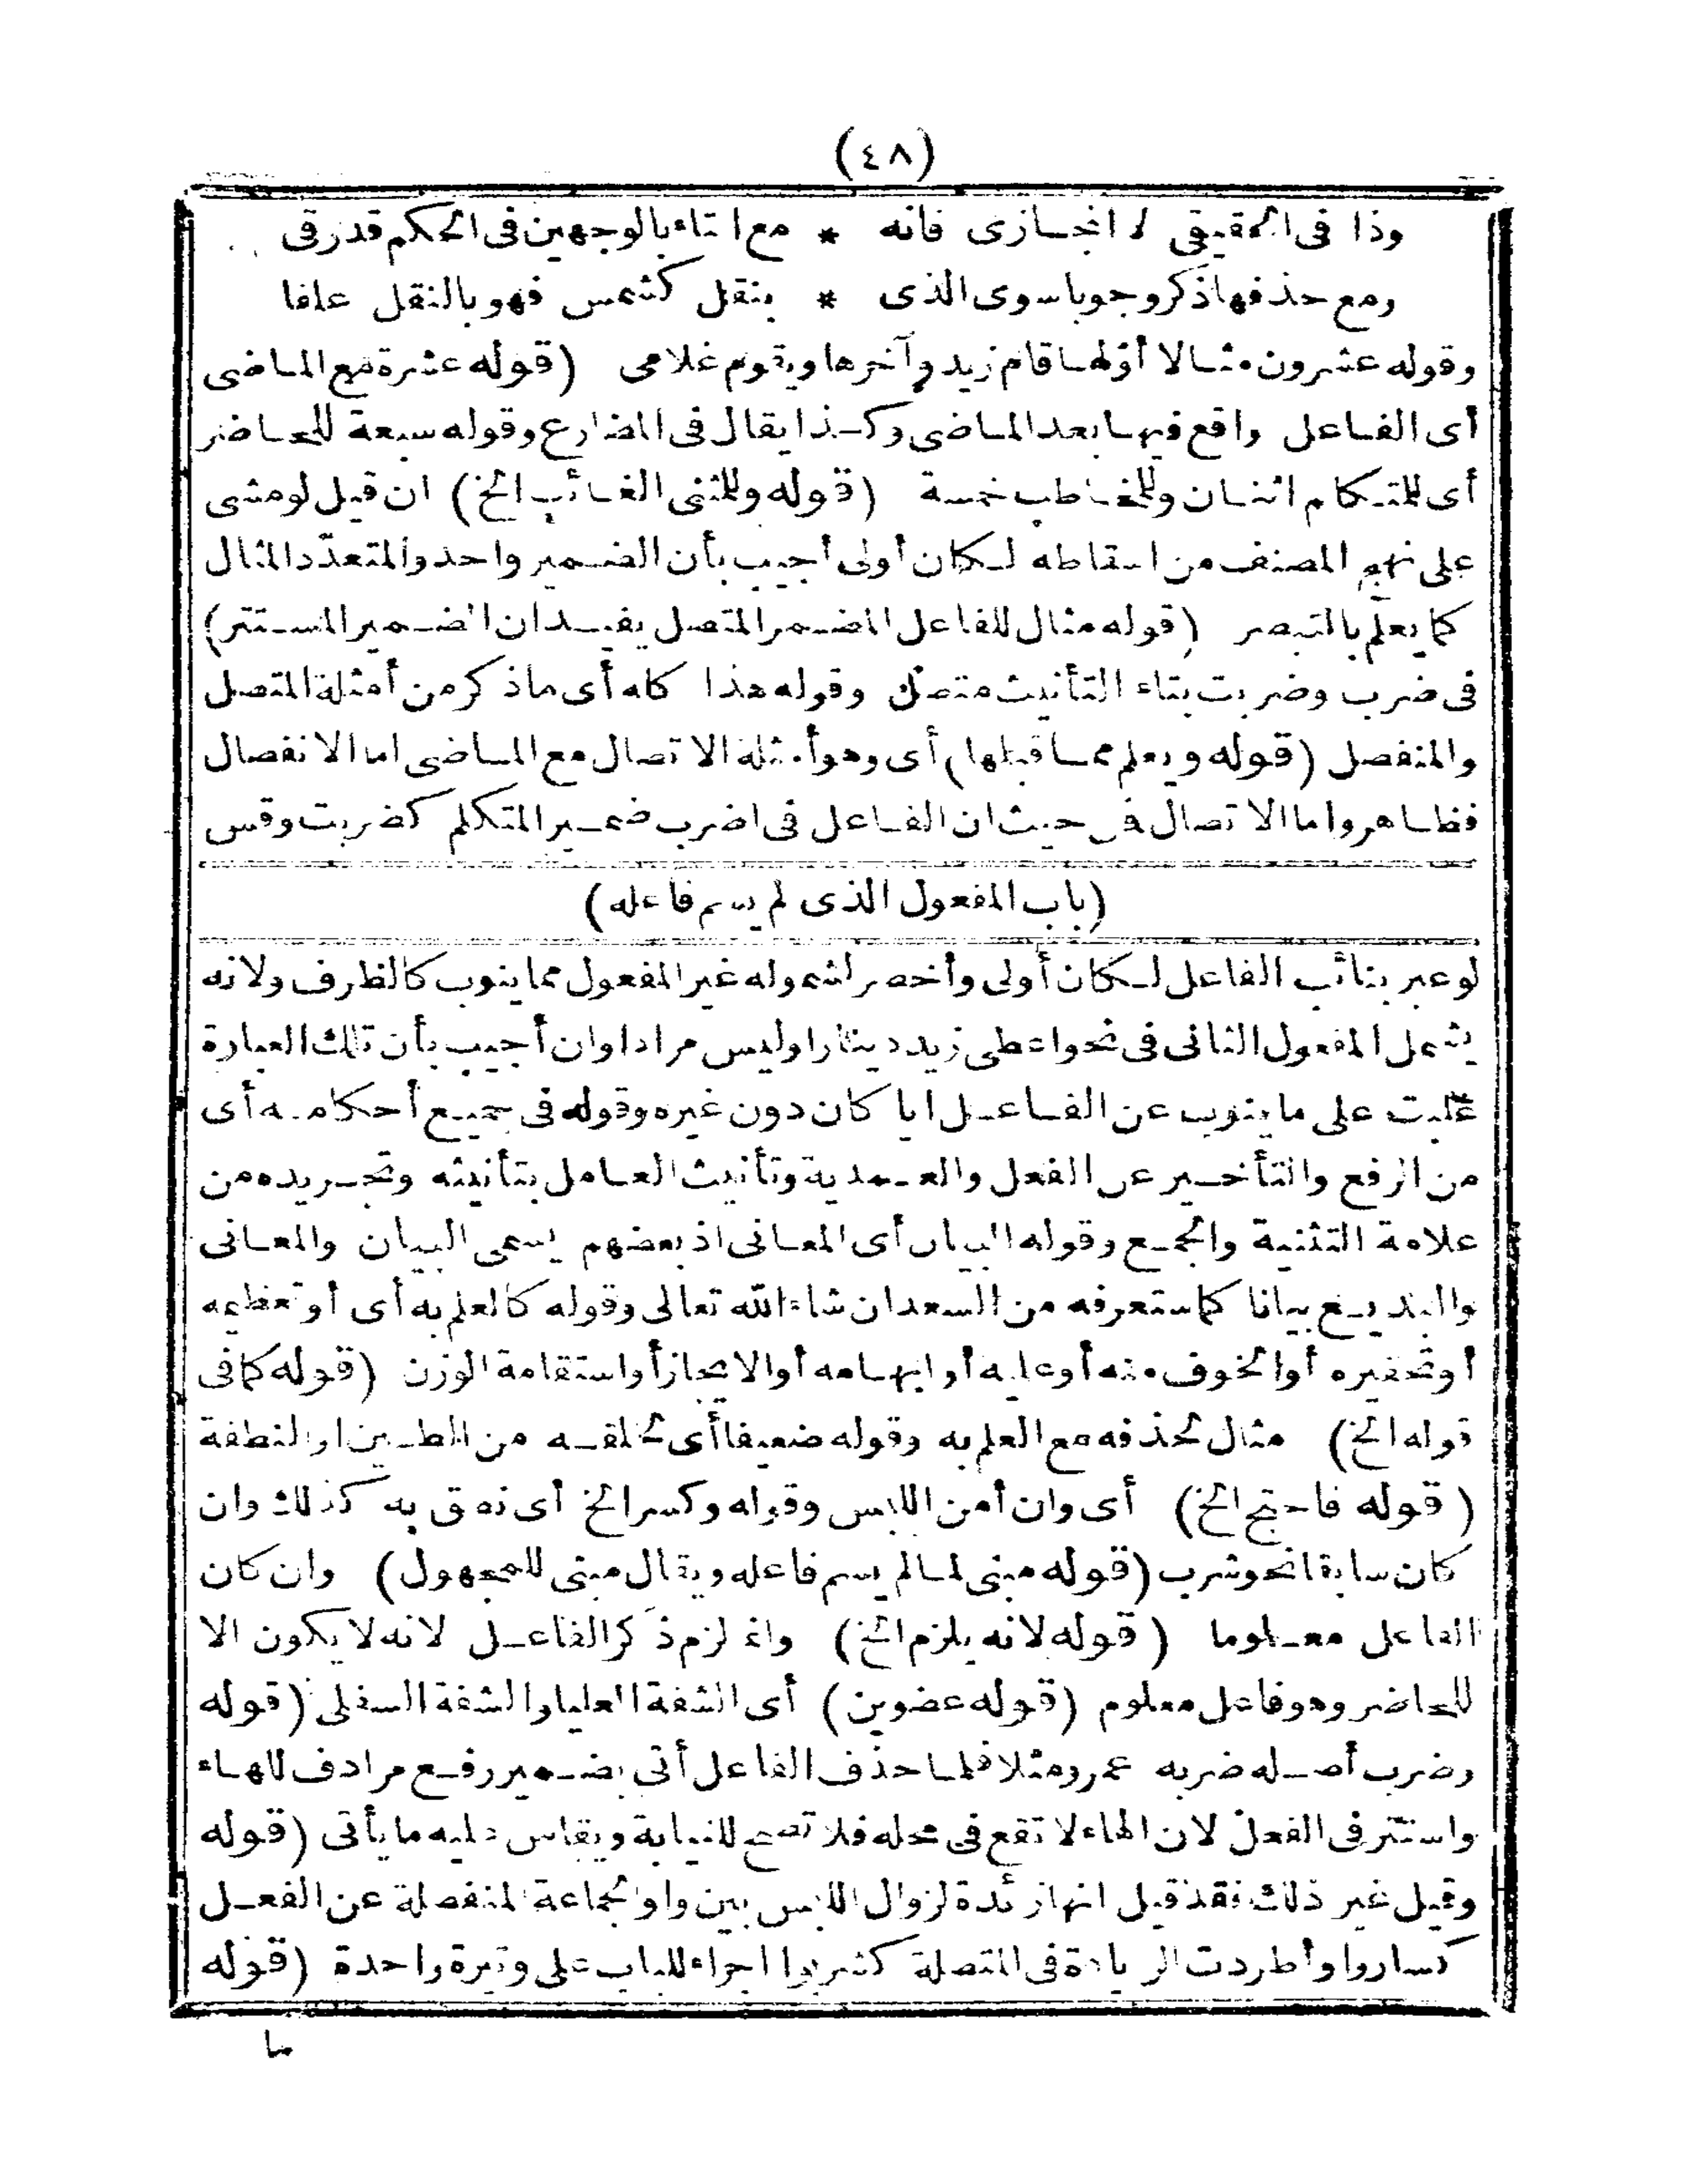 (٤٨)
وذا فى الحقيقى لا المجازى فانه * مع التاء بالوجهين فى الحكم قدرقى
ومع حذفها ذكر وجوبا سوى الذى * ينقل كشمس فهو بالنقل علقا
وقوله عشرون مثالا أولها قام زيد وآخرها ويقوم غلامى (قوله عشرة مع الماضى
أى الفاعل واقع فيها بعد الماضى وكذا يقال فى المضارع وقوله سبعة للحاضر
أى للمتكلم اثنان وللمخاطب خمسة (قوله وللمثنى الغائب الخ) ان قيل لو مشى
على نهج المصنف من اسقاطه لكان أولى أجيب بأن الضمير واحد والمتعدد المثال
كما يعلم بالتبصر (قوله مثال للفاعل المضمر المتصل يفيد ان الضمير المستتر)
فى ضرب وضربت بتاء التأنيث متصل وقوله هذا كله أى ماذكر من أمثلة المتصل
والمنفصل (قوله ويعلم مما قبلها) أى وهو أمثلة الاتصال مع الماضى اما الانفصال
فظاهر واما الاتصال فمن حيث ان الفاعل فى اضرب ضمير المتكلم كضربت وقس
(باب المفعول الذى لم يسم فاعله)
لو عبر بنائب الفاعل لكان أولى وأخصر لشموله غير المفعول مما ينوب كالظرف ولانه
يشمل المفعول الثانى فى نحو اعطى زيد دينارا وليس مرادا وان أجيب بأن تلك العبارة
غلبت على ما ينوب عن الفاعل ايا كان دون غيره وقوله فى جميع أحكامه أى
من الرفع والتأخير عن الفعل والعمدية وتأنيث العامل بتأنيثه وتجريده من
علامة التثنية والجمع وقوله البيان أى المعانى اذ بعضهم يسمى البيان والمعانى
والبديع بيانا كما ستعرفه من السعد ان شاء الله تعالى وقوله كالعلم به أى أو تعظيمه
أو تحقيره أو الخوف منه أو عليه أو ابهامه أو الايجاز أو استقامة الوزن (قوله كما فى
قوله الخ) مثال لحذفه مع العلم به وقوله ضعيفا أى لخلقه من الطين او النطفة
(قوله فاحتج الخ) أى وان أمن اللبس وقوله وكسر الخ أى نطق به كذلك وان
كان سابقا نحو شرب (قوله مبنى لما لم يسم فاعله ويقال مبنى للمجهول) وان كان
الفاعل معلوما (قوله لانه يلزم الخ) وانما لزم ذكر الفاعل لانه لا يكون الا
للحاضر وهو فاعل معلوم (قوله عضوين) أى الشفة العليا والشفة السفلى (قوله
وضرب أصله ضربه عمرو مثلا فلما حذف الفاعل أتى بضمير رفع مرادف للهاء
واستتر فى الفعل لان الهاء لا تقع فى محله فلا تصح للنيابة ويقاس عليه ما يأتى (قوله
وقيل غير ذلك فقد قيل انها زائدة لزوال اللبس بين واو الجماعة المنفصلة عن الفعل
كساروا وأطردت الزيادة فى المتصلة كشربوا اجراء للباب على وتيرة واحدة (قوله
ما